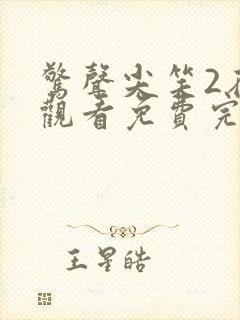 驚聲尖笑2
觀看免費完
王星皓